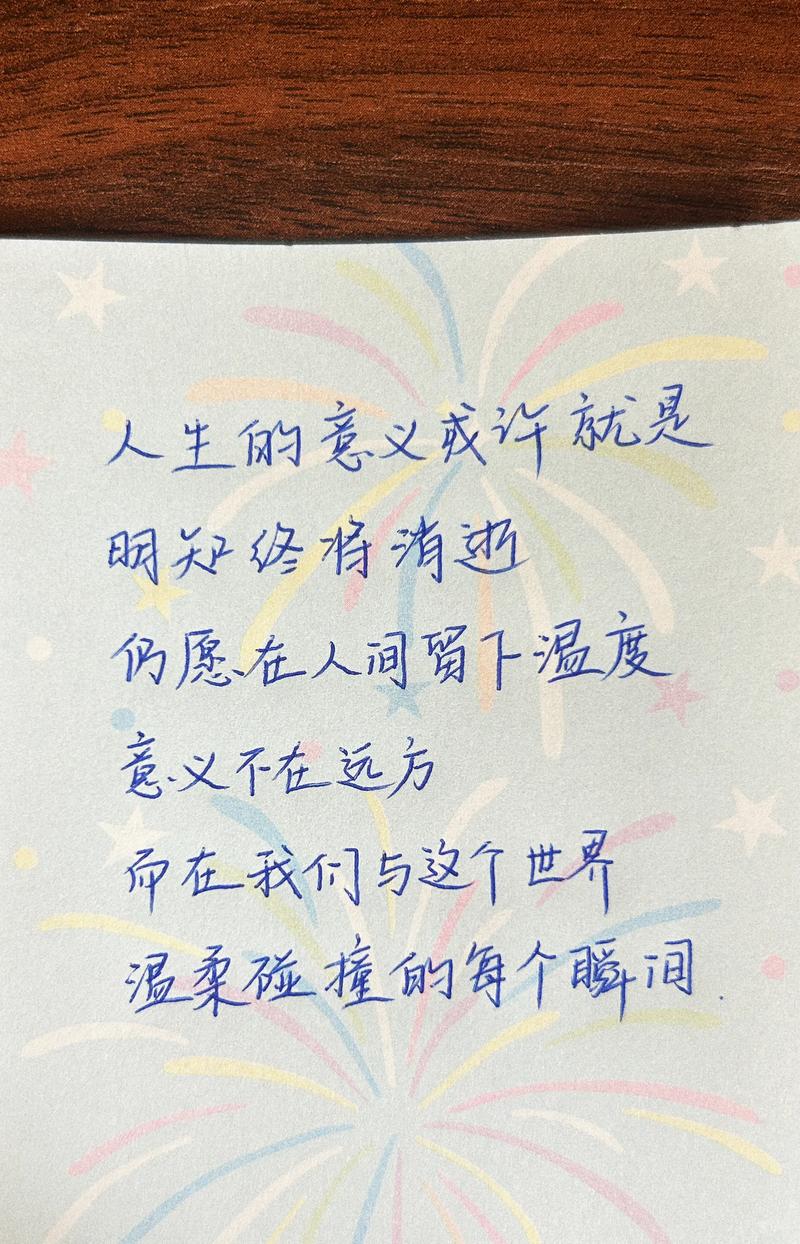 人生的意义或许就是
明知终将消逝
仍愿在人间留下温度
意义不在远方
而在我们与这个世界
温柔碰撞的每个瞬间.